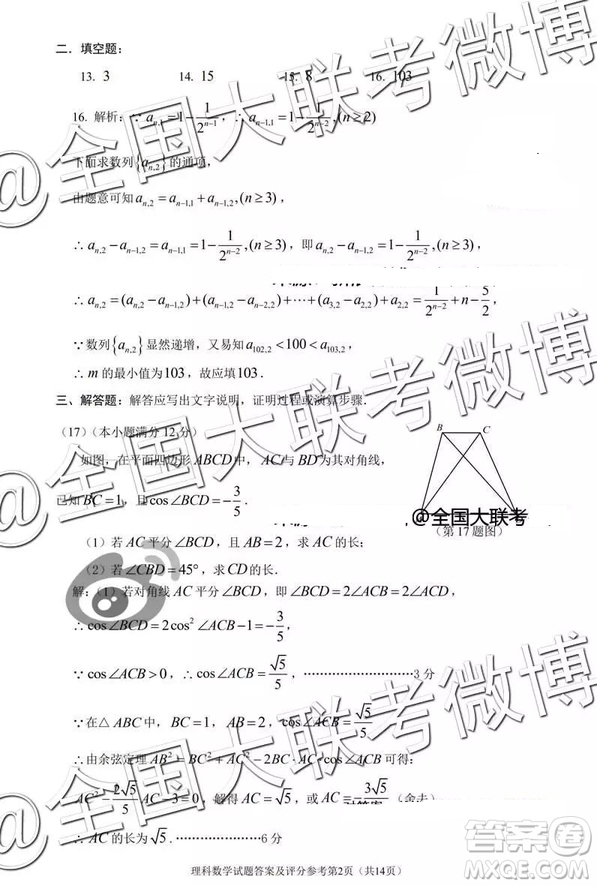 二．填空题：
13. 3 14. 15 15. 8 16. 103
16. 解析：∵ a_{n,1}=1-\frac{1}{2^{n-1}}，∴ a_{n-1,1}=1-\frac{1}{2^{n-2}},(n≥2)
下面求数列{a_{n,2}}的通项，
由题意可知 a_{n,2}=a_{n-1,1}+a_{n-1,2},(n≥3)，
∴ a_{n,2}-a_{n-1,2}=a_{n-1,1}=1-\frac{1}{2^{n-2}},(n≥3)，即 a_{n,2}-a_{n-1,2}=1-\frac{1}{2^{n-2}},(n≥3)，
∴ a_{n,2}=(a_{n,2}-a_{n-1,2})+(a_{n-1,2}-a_{n-2,2})+⋯+(a_{3,2}-a_{2,2})+a_{2,2}=\frac{1}{2^{n-2}}+n-\frac{5}{2}，
∵ 数列{a_{n,2}}显然递增，又易知 a_{102,2}<100<a_{103,2}，
∴ m 的最小值为103，故应填103．
三、解答题：解答应写出文字说明，证明过程或演算步骤．
（17）（本小题满分12分）
如图，在平面四边形 ABCD 中，AC 与 BD 为其对角线，
已知 BC=1，且 cos∠BCD=-\frac{3}{5}．
B C
（第17题图）
（1）若 AC 平分∠BCD，且 AB=2，求 AC 的长；
（2）若∠CBD=45°，求 CD 的长．
解：（1）若对角线 AC 平分∠BCD，即∠BCD=2∠ACB=2∠ACD，
∴ cos∠BCD=2cos²∠ACB-1=-\frac{3}{5}，
∵ cos∠ACB>0，∴ cos∠ACB=\frac{\sqrt{5}}{5}，⋯⋯⋯⋯⋯⋯⋯⋯3分
∵ 在△ABC 中，BC=1，AB=2，cos∠ACB=\frac{\sqrt{5}}{5}
∴ 由余弦定理 AB²=BC²+AC²-2BC·AC·cos∠ACB 可得：
AC²-\frac{2\sqrt{5}}{5}AC-3=0，解得 AC=\sqrt{5}，或 AC=-\frac{3\sqrt{5}}{5}（舍去）
∴ AC 的长为\sqrt{5}．⋯⋯⋯⋯⋯⋯6分
理科数学试题答案及评分参考第2页（共14页）
@全国大联考微博
@全国大联考微博
@全国大联考微博
@全国大联考
答案圈
MXQE.COM